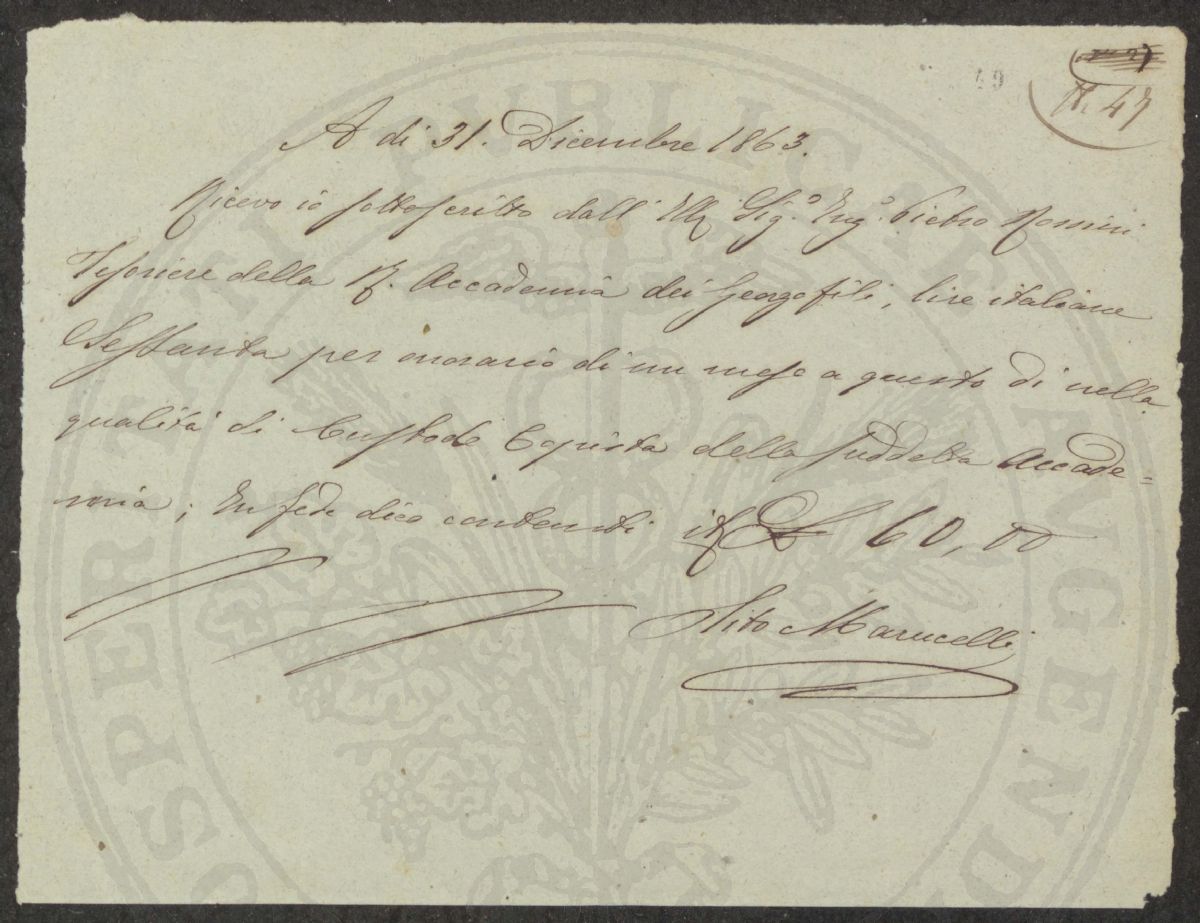 49
N. 47
A dì 31. Dicembre 1863.
Ricevo io sottoscritto dall' Ill. Sig.o Ing.o Pietro
Tesoriere della R. Accademia dei Georgofili, lire italiane
Sessanta per onorario di un mese a questo dì nella
qualità di Custode Copista della suddetta Accade=
mia; In fede dico contanti it. £ 60,00
Tito Marucelli
PROSPERITATI PUBLICAE AUGENDAE